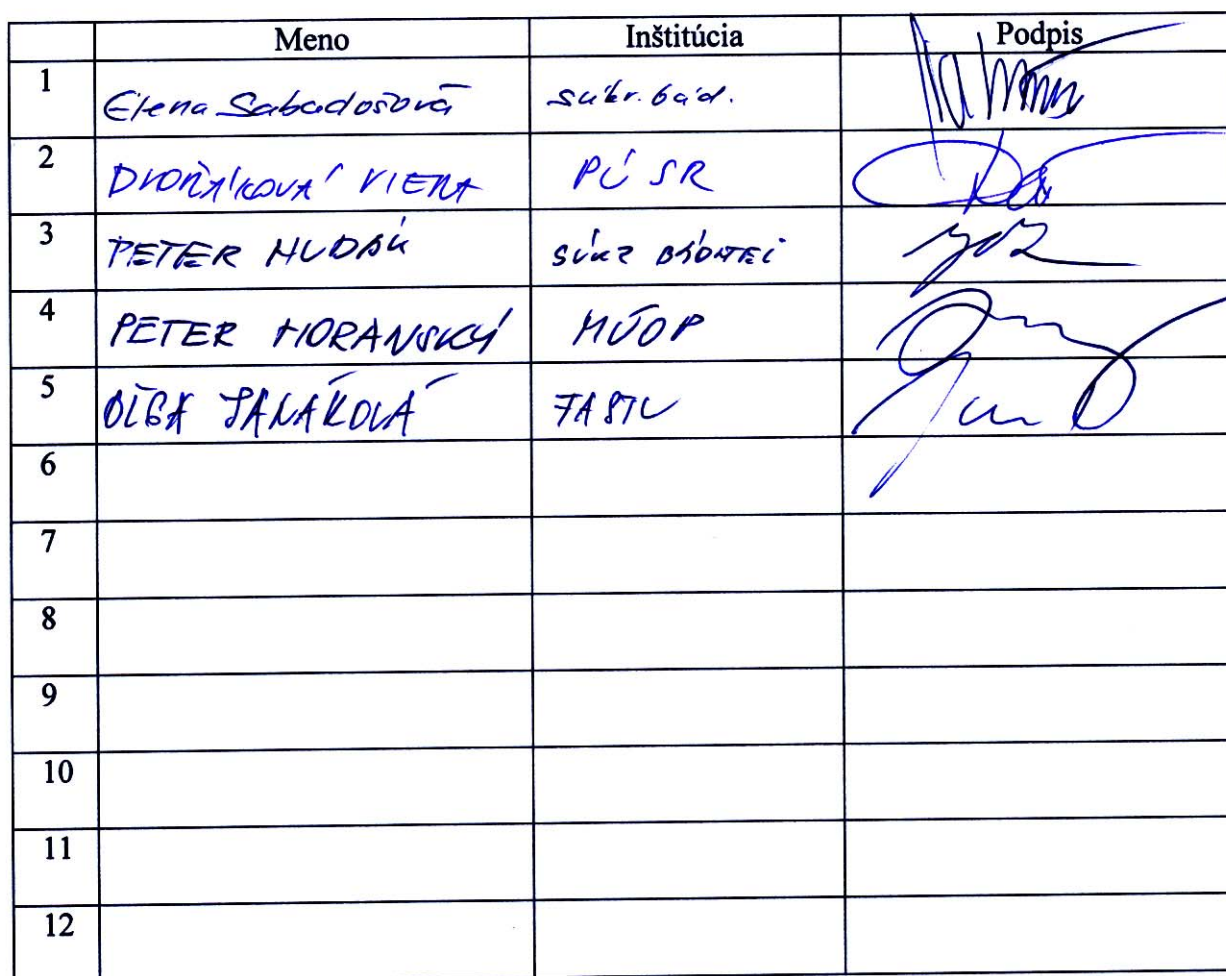 Meno Inštitúcia Podpis
1 Elena Sabadošová súkr. bád.
2 DVOŘÁKOVÁ VIERA PÚ SR
3 PETER HUDÁK
4 PETER HORANSKÝ MÚOP
5 OĽGA JANÁKOVÁ FASTU
6
7
8
9
10
11
12